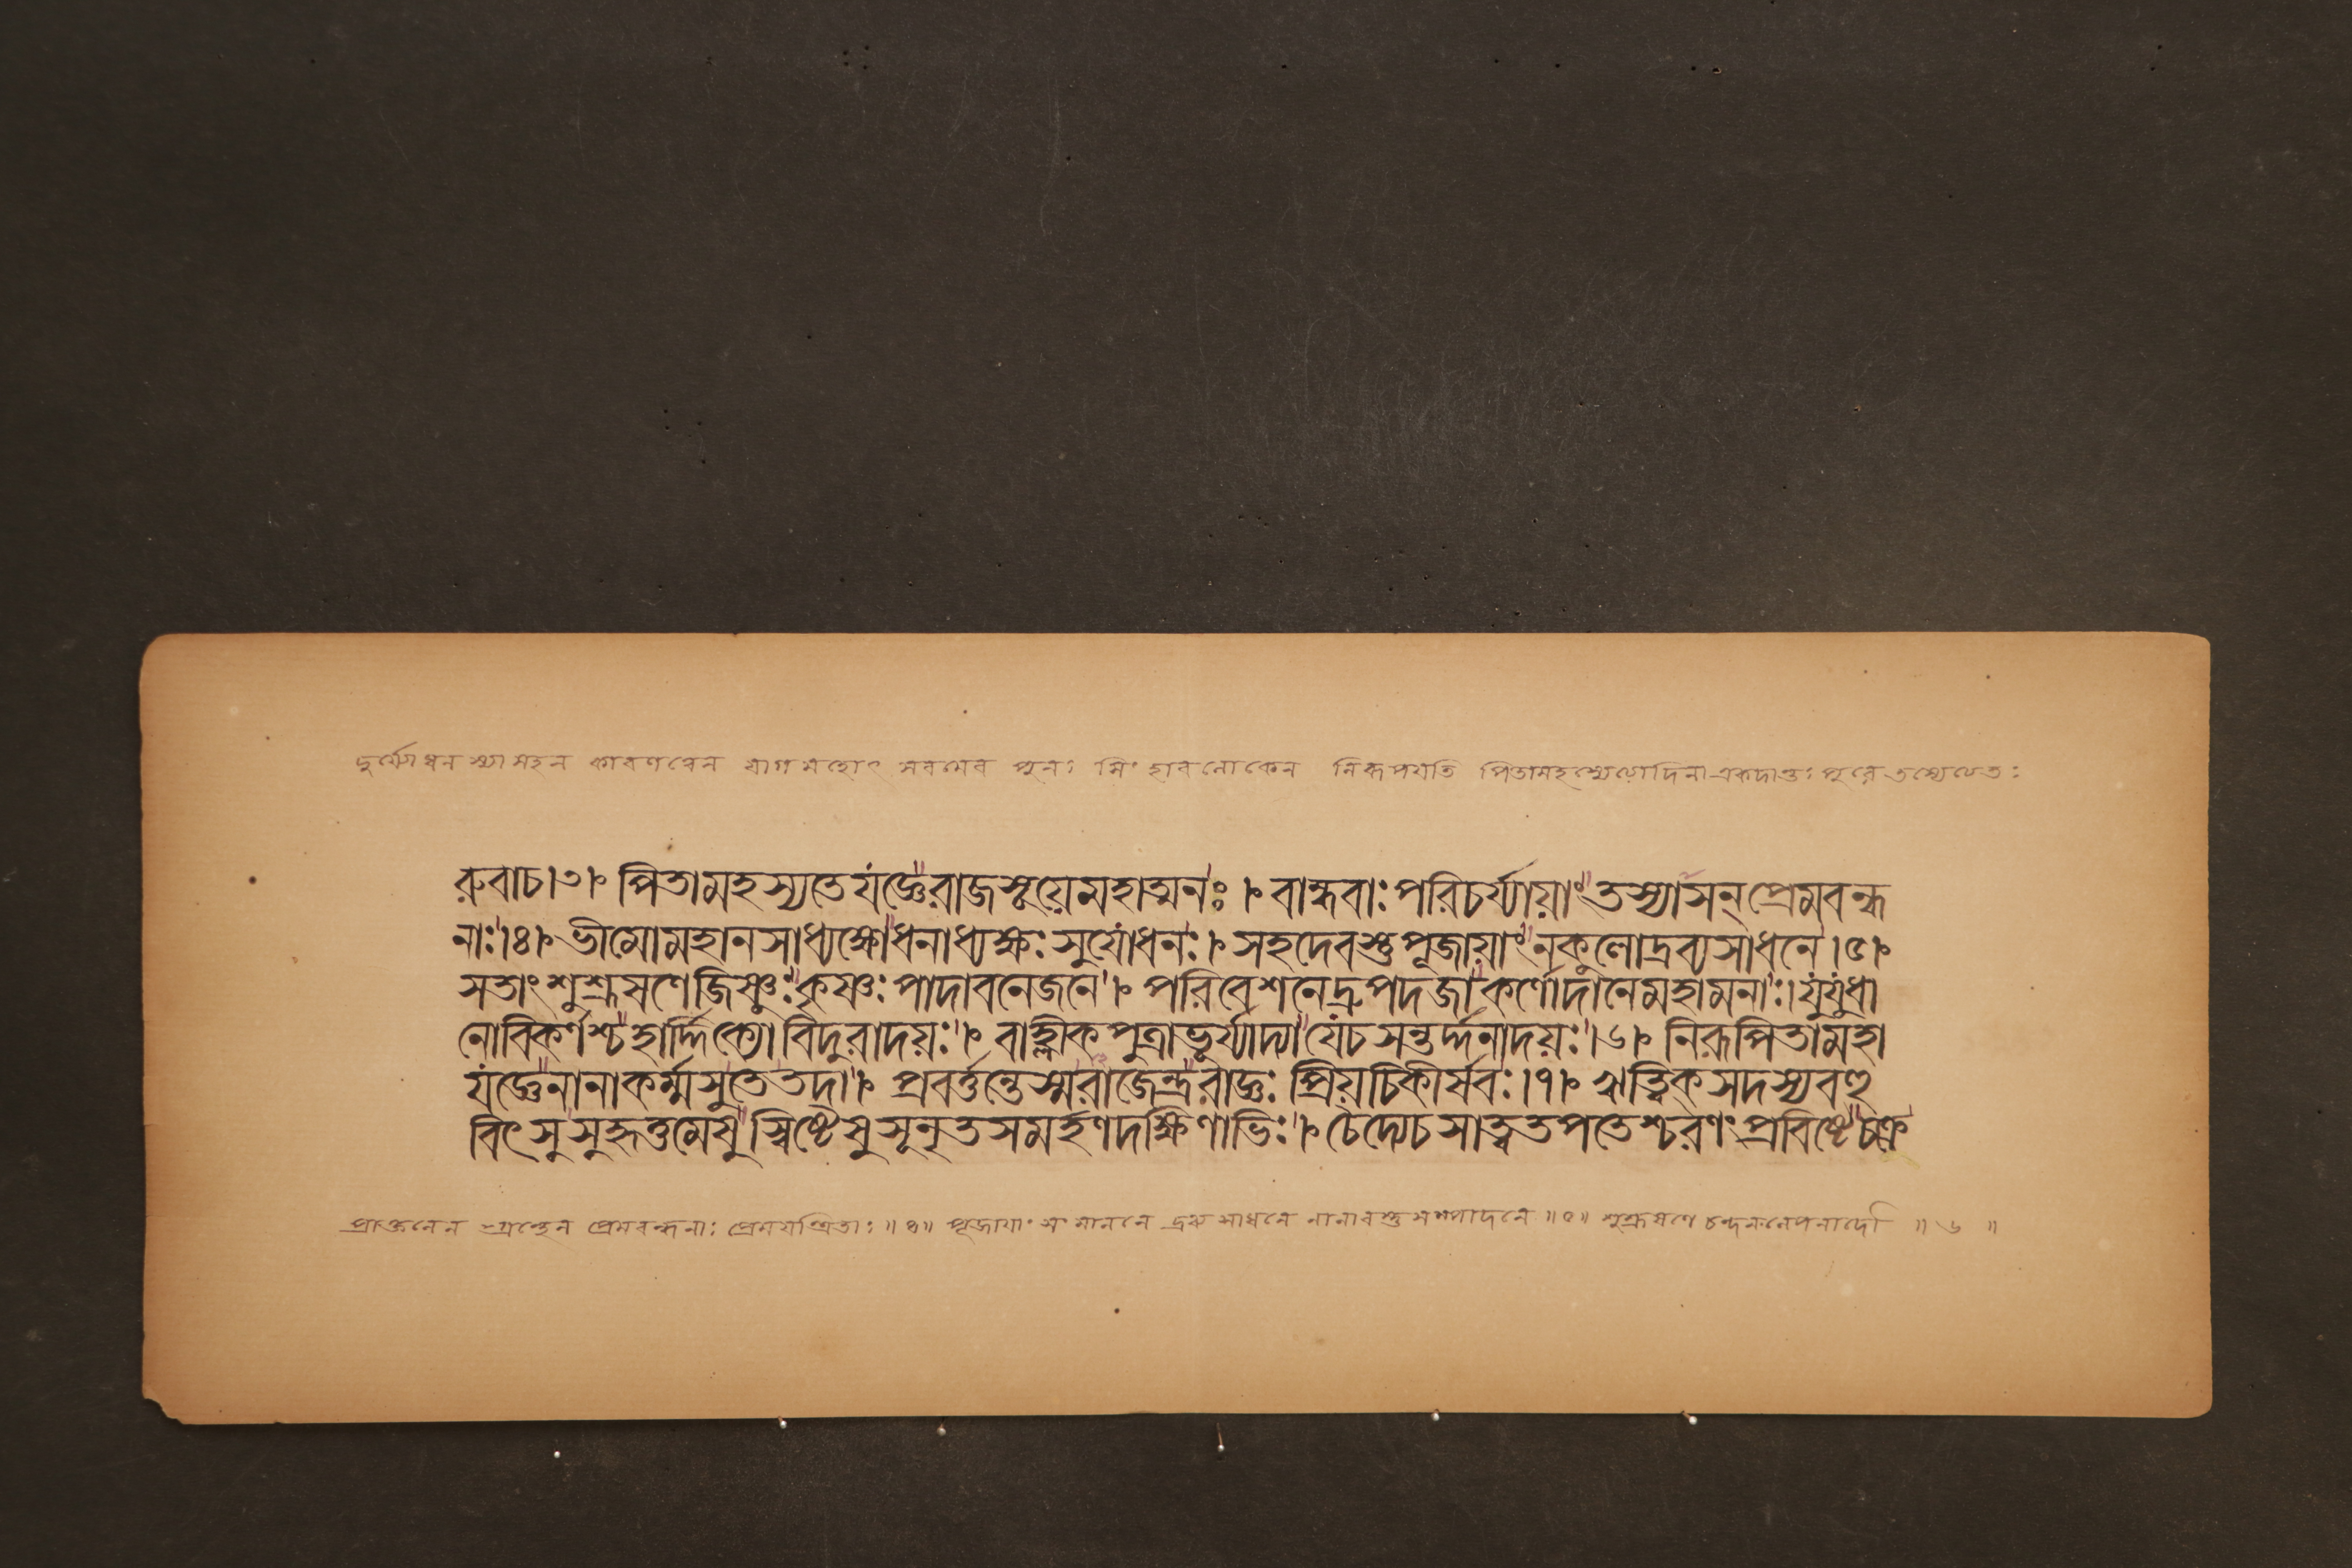 দুর্য্যোধনস্যাসহন কারণত্বেন যাগমহোৎসবমেব পুনঃ সিংহাবলোকেন নিরূপয়তি পিতামহস্যেত্যাদিনা একদান্তঃপুরে তস্যেত্যতঃ
রুবাচ।৩। পিতামহস্যতেযজ্ঞেরাজসূয়েমহাত্মনঃ । বান্ধবাঃপরিচর্য্যায়াংতস্যাসন্প্রেমবন্ধ
নাঃ।৪। ভীমোমহানসাধ্যক্ষোধনাধ্যক্ষঃসুযোধনঃ। সহদেবস্তুপূজায়াংনকুলোদ্রব্যসাধনে।৫।
সতাংশুশ্রূষণেজিষ্ণুঃকৃষ্ণঃপাদাবনেজনে। পরিবেশনেদ্রুপদজাকর্ণোদানেমহামনাঃ।যুযুধা
নোবিকর্ণশ্চহার্দ্দিক্যোবিদুরাদয়ঃ। বাহ্লীকপুত্রাভূর্য্যাদ্যাযেচসন্তর্দ্দনাদয়ঃ।৬। নিরূপিতামহা
যজ্ঞেনানাকর্ম্মসুতেতদা। প্রবর্ত্তন্তেস্মরাজেন্দ্ররাজ্ঞঃ প্রিয়চিকীর্ষবঃ।৭। ঋত্বিকসদস্যবহু
বিৎসুসুহৃত্তমেষুস্বিষ্টেষুসূনৃতসমর্হণদক্ষিণাভিঃ। চৈদ্যেচসাত্বতপতেশ্চরণংপ্রবিষ্টেচক্রু
প্রাক্তনেন গ্রন্থেন প্রেমবন্ধনাঃ প্রেমযন্ত্রিতাঃ॥৪॥ পূজায়াং সংমাননে দ্রব্যসাধনে নানাবস্তুসম্পাদনে॥৫॥ শুশ্রূষণে চন্দনলেপনাদৌ ॥৬॥